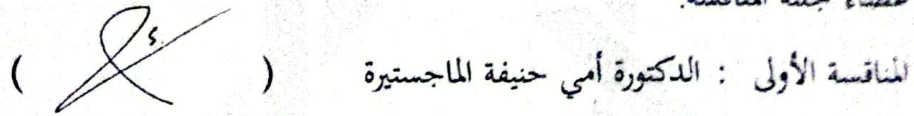 أعضاء لجنة المناقشة:
المناقشة الأولى : الدكتورة أمي حنيفة الماجستيرة ( )